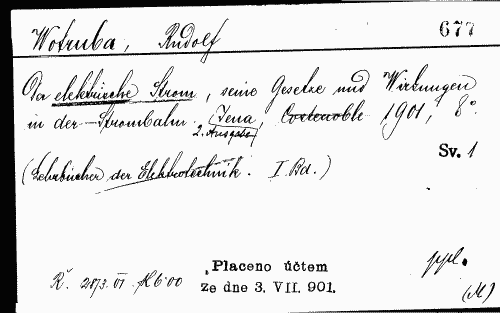 Wotruba, Rudolf 677
Da elektrische Strom, seine Gesetze und Wirkungen
in der Strombahn. Jena, Costenoble 1901, 8°.
2. Ausgabe
Sv. 1
(Lehrbücher der Elektrotechnik. I. Bd.)
Placeno účtem
ze dne 3. VII. 901.
ppl.
(M)